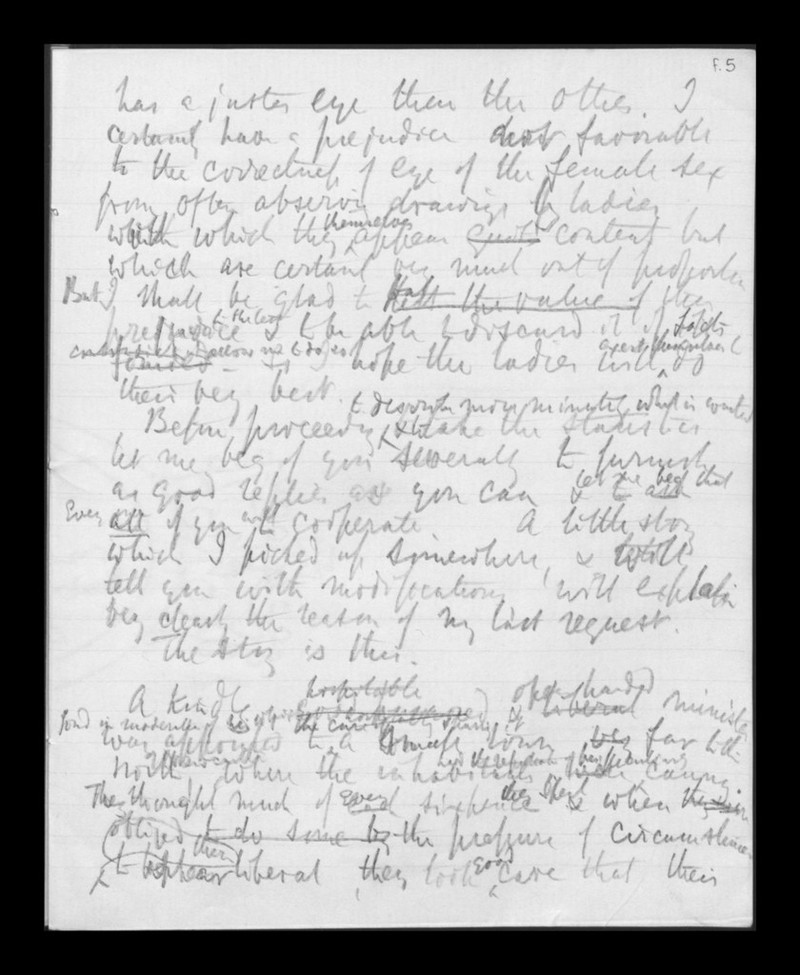 f.5
has a juster eye than the other. I
certainly have a prejudice not favorable
to the correctness of eye of the female sex
from often observing drawings by ladies
with which they themselves appear quite content but
which are certainly very much out of proportion
But I shall be glad to the value of
prejudice & to be able to discard it if facts
hope the ladies will do
their very best.
to describe more minutely what is wanted
Before proceeding the statistics
let me beg of you severally to furnish
as good replies as you can & let me beg that
Every all of you will cooperate A little story
which I picked up somewhere, & will
tell you with modifications will explain
very clearly the reason of my last request.
The story is this.
A kindly hospitable open handed liberal minister
fond in moderation of the
was appointed to a small town very far
North where the inhabitants canny
They thought much of every sixpence & when
obliged to do some by the pressure of circumstances
to appear liberal they took good care that their